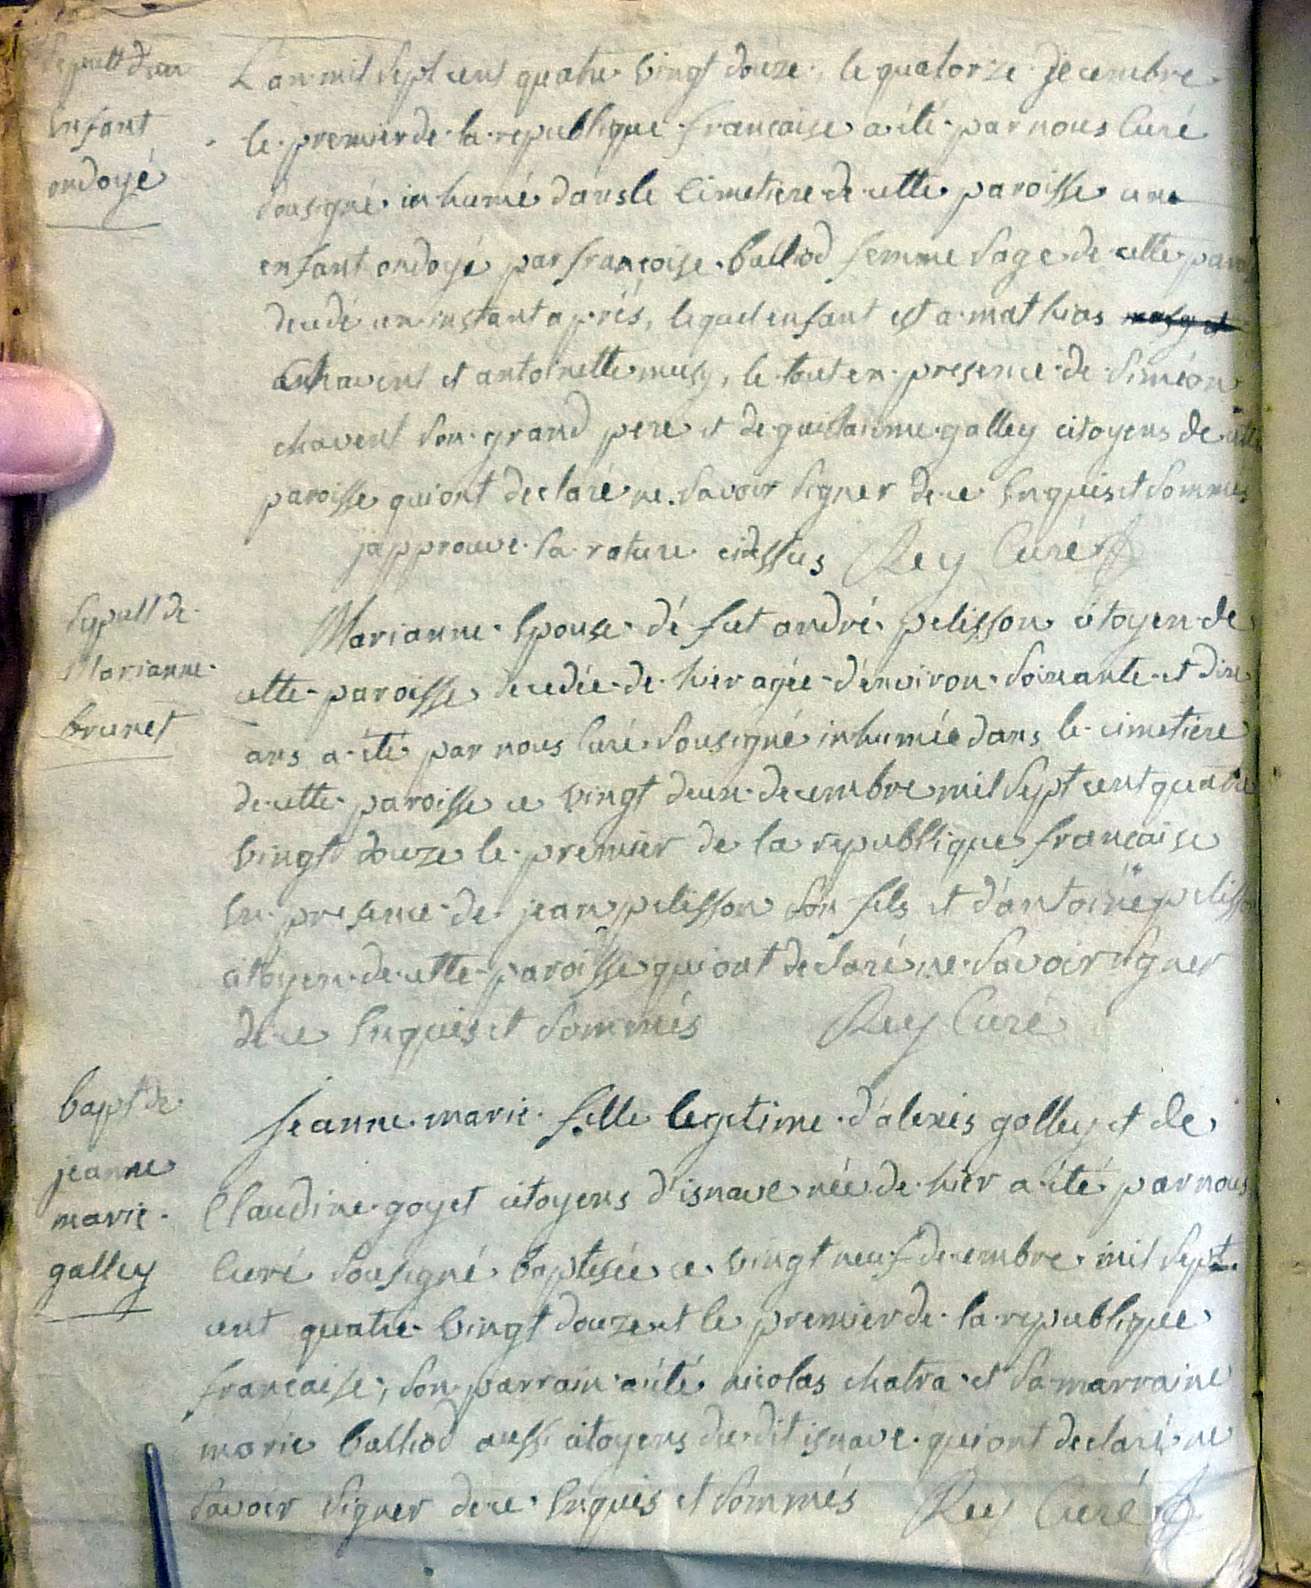 Sepult d'un
enfant
ondoyé
L'an mil sept cent quatre vingt douze, le quatorze decembre
le premier de la republique francaise a été par nous Curé
Sousigné inhumé dans le Cimetiere de cette paroisse une
enfant ondoyé par francoise balliod femme Sage de cette paroi
decedé un instant après, lequel enfant est a mathias
chavent et antoinette musy, le tout en presence de Siméon
chavent Son grand pere et de guillaume galley citoyens de cette
paroisse qui ont declaré ne Savoir Signer de ce Enquis et Sommés
japprouve la rature cidessus Rey Curé
Sepult de
Marianne
brunet
Marianne Epouse de fut andré pelisson citoyen de
cette paroisse decedée de hier agée d'environ Soixante et dix
ans a été par nous Curé Sousigné inhumée dans le cimetiere
de cette paroisse ce vingt deux decembre mil Sept cent quatre
vingt douze le premier de la republique francaise
En presence de jean pelisson Son fils et d'antoine pelisson
citoyen de cette paroisse qui ont declaré ne Savoir Signer
de ce Enquis et Sommés Rey Curé
bapt de
jeanne
marie
galley
Jeanne marie fille legitime d'alexis galley et de
Claudine goyet citoyens d'isnave née de hier a été par nous
Curé Sousigné baptisée ce vingt neuf decembre mil Sept
cent quatre vingt douze et le premier de la republique
francaise, Son parrain a été nicolas chatra et Sa marraine
marie balliod aussi citoyens du dit isnave qui ont declaré ne
Savoir Signer de ce Enquis et Sommés Rey Curé